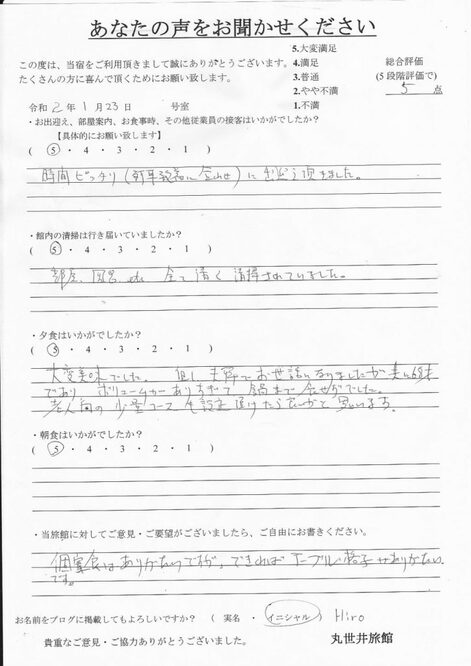 あなたの声をお聞かせください
この度は、当宿をご利用頂きまして誠にありがとうございます。
たくさんの方に喜んで頂くためにお願い致します。
5.大変満足
4.満足
3.普通
2.やや不満
1.不満
総合評価
(5段階評価で)
5 点
令和 2年 1月 23日 号室
・お出迎え、部屋案内、お食事時、その他従業員の接客はいかがでしたか？
【具体的にお願い致します】
( 5・4・3・2・1 )
時間ピッタリ(列車発着に合わせ)に出迎え頂きました。
・館内の清掃は行き届いていましたか？
( 5・4・3・2・1 )
部屋、風呂、etc 全て清く清掃されていました。
・夕食はいかがでしたか？
( 5・4・3・2・1 )
大変美味でした。但し お世話になりましたが
であり ボリュームが ありすぎて 鍋まで食せずでした。
老人向の少量コースを設定頂けたら良いかと思います。
・朝食はいかがでしたか？
( 5・4・3・2・1 )
・当旅館に対してご意見・ご要望がございましたら、ご自由にお書きください。
個室食はありがたいですが、できれば テーブル椅子がありがたい
です。
お名前をブログに掲載してもよろしいですか？ ( 実名 ・ イニシャル ) Hiro
貴重なご意見・ご協力ありがとうございました。
丸世井旅館